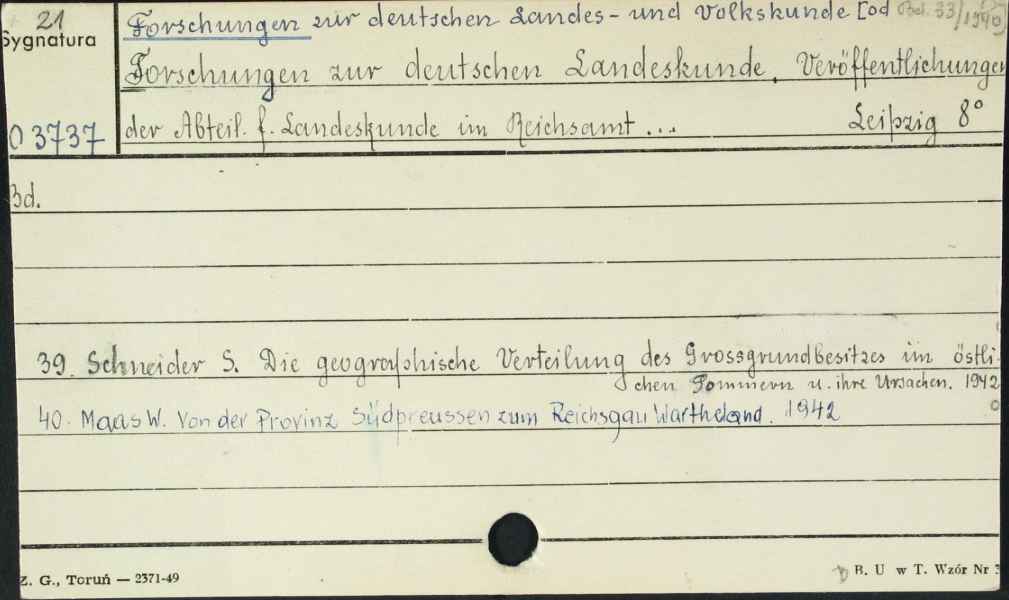 21
Sygnatura
O 3737
Forschungen zur deutschen Landes- und Volkskunde [od Bd. 33/1940]
Forschungen zur deutschen Landeskunde. Veröffentlichungen
der Abteil. f. Landeskunde im Reichsamt ... Leipzig 8°
Bd.
39. Schneider S. Die geographische Verteilung des Grossgrundbesitzes im östli-
chen Pommern u. ihre Ursachen. 1942
40. Maas W. Von der Provinz Südpreussen zum Reichsgau Wartheland. 1942
Z. G., Toruń — 2371-49
B. U w T. Wzór Nr 3